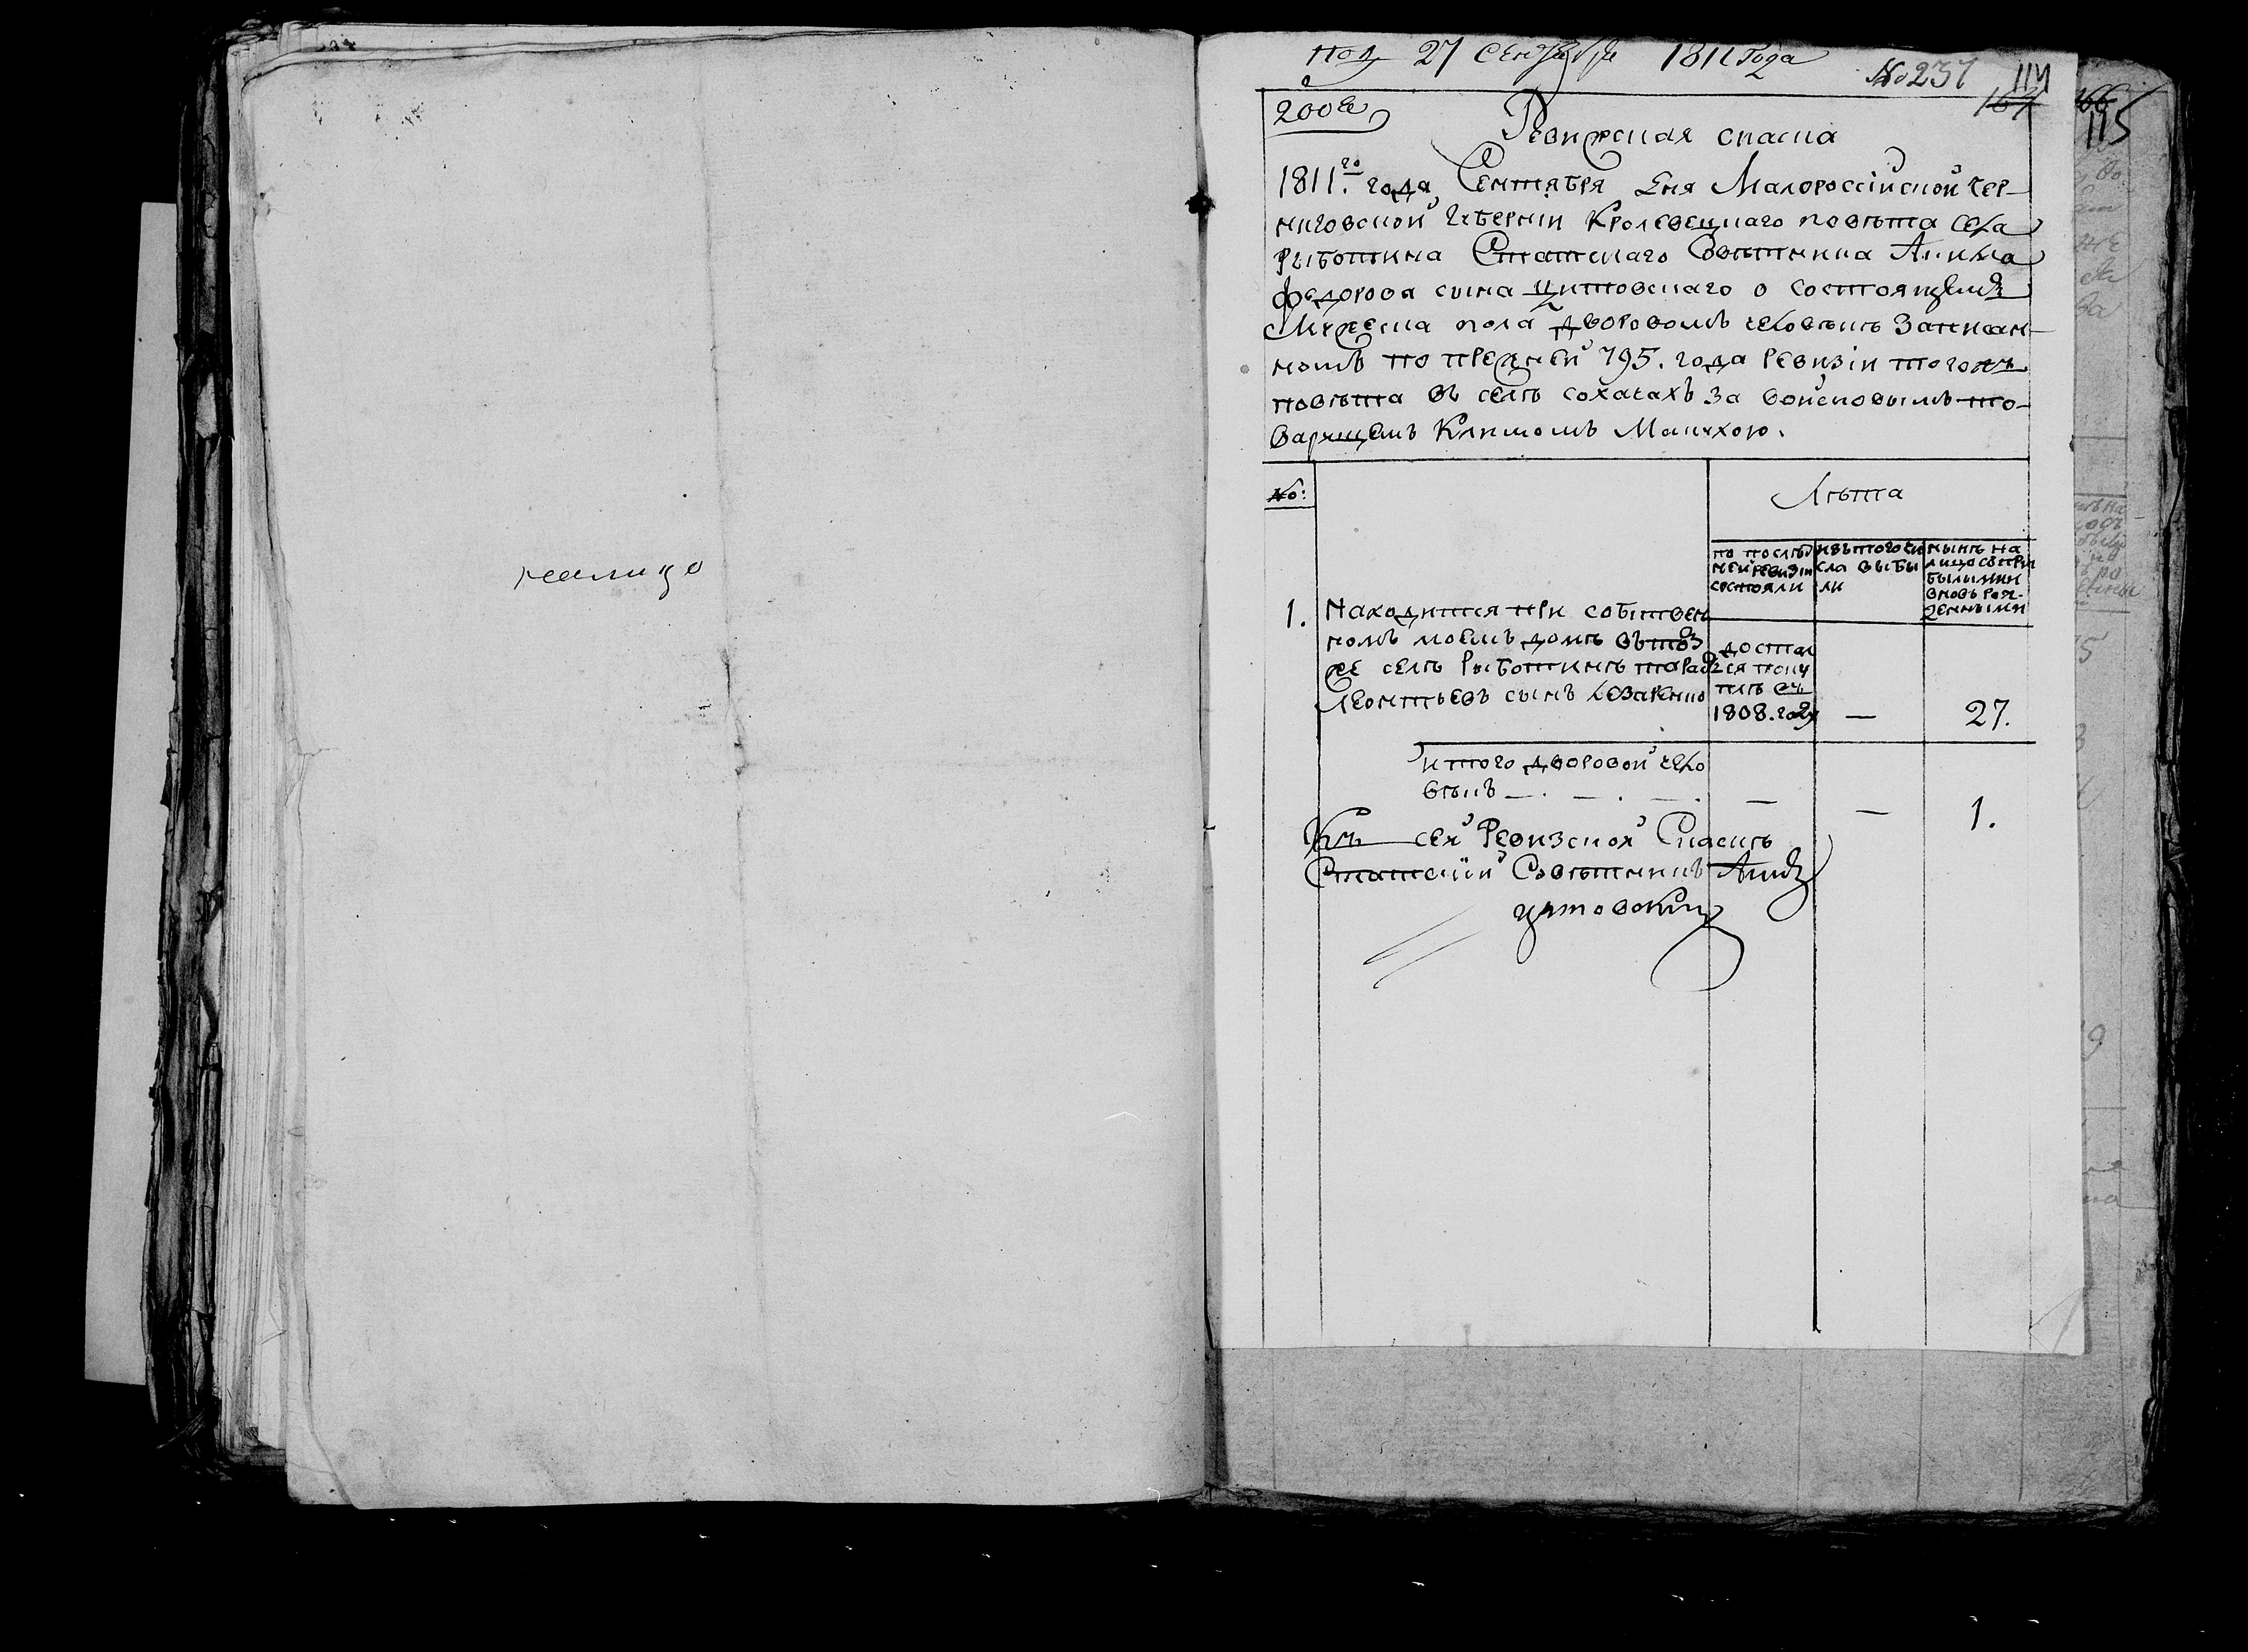 налицо
под 27 Сентября 1811 года
№ 237
114
164
200е
Ревизская сказка
1811.го года, Сентября Дня Малороссійской чер-
ниговской Губерніи Кролевецкаго повѣта села
Рыботина Статскаго Совѣтника Якима
федорова сына Цитовскаго о состоящемъ
Мужеска пола дворовомъ человѣкѣ Записан-
номъ по прежней 795. года Ревизіи тогожъ
повѣта въ селѣ сохачахъ за войсковымъ то-
варищемъ Климомъ Манухою.
№:
Лѣта
по послѣд
ней ревизіи
состояли
изъ того чи
сла выбы
ли
нынѣ на
лицо сопри
былыми и
вновь рож-
денными
1. Находится при собствен
номъ моемъ домѣ въ той
же селѣ Рыботинѣ тарасъ
Леонтьевъ сынъ
достал
ся покуп
1808. году
—
27.
итого дворовой чело
вѣкъ — . — . — .
—
—
1.
Къ сей Ревизской Сказкѣ
Статскій Совѣтникъ Якимъ
цитовский
166
115